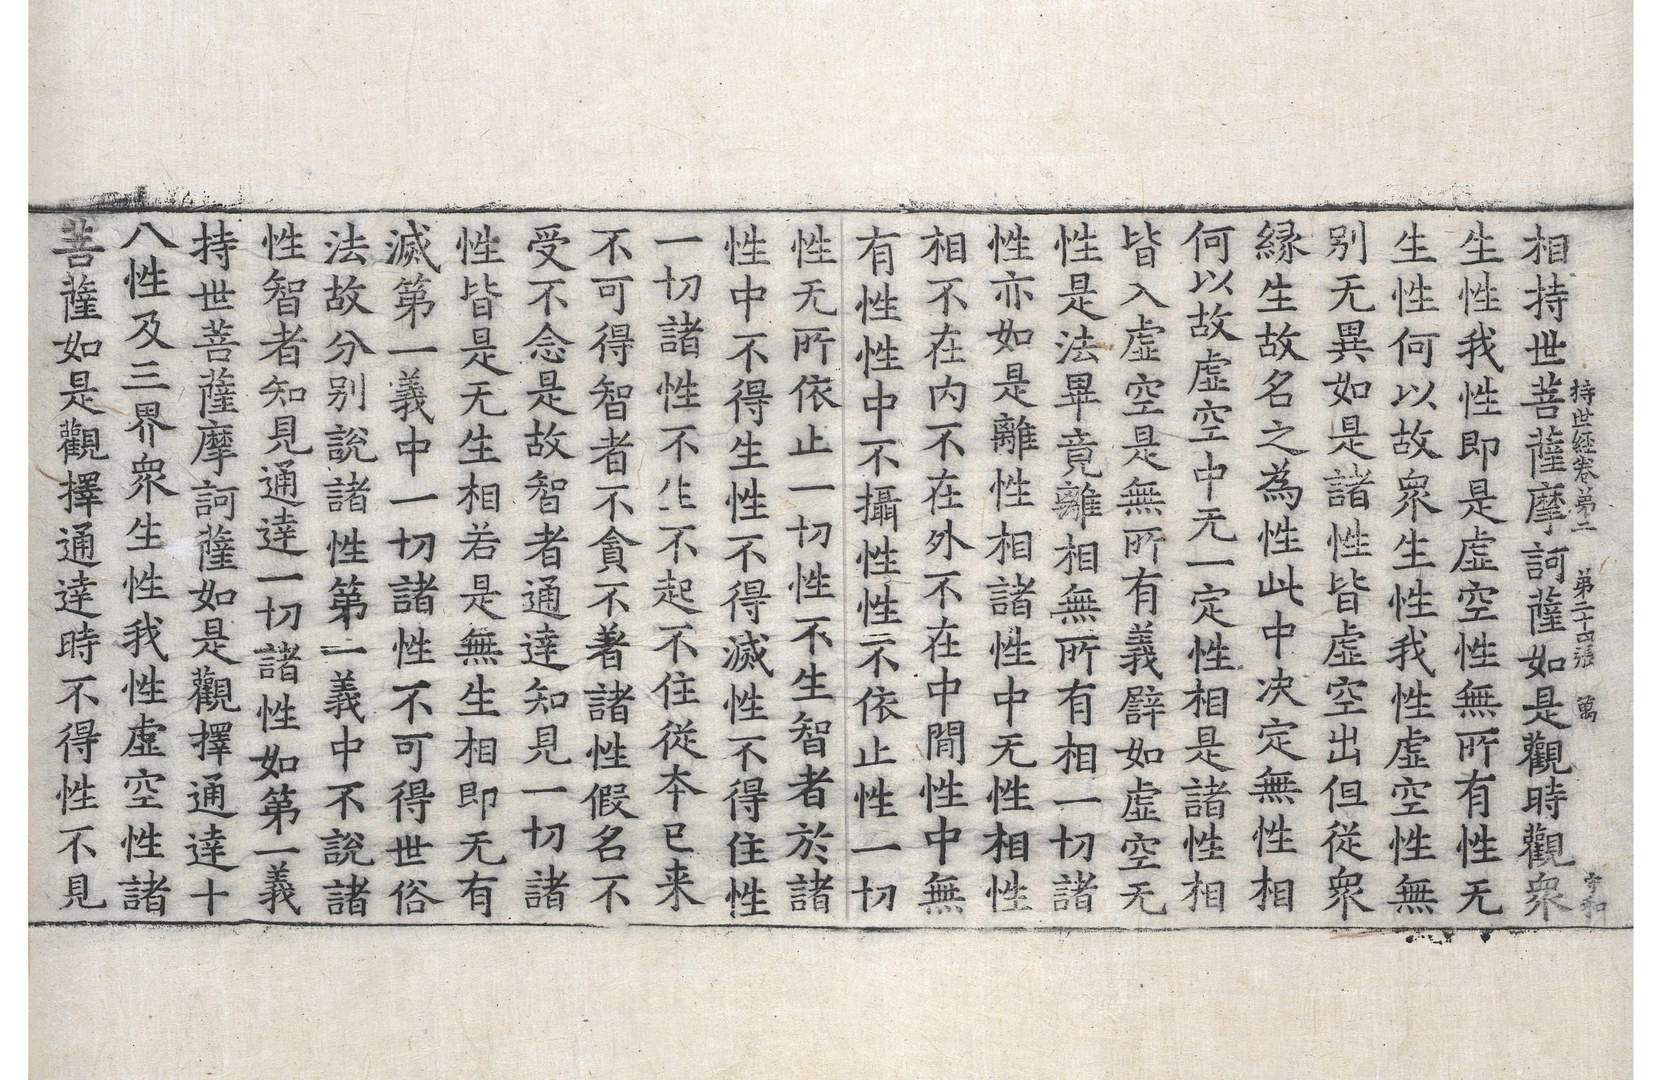 持世経卷第二 第二十四張 萬
相持世菩薩摩訶薩如是觀時觀衆
生性我性即是虛空性無所有性无
生性何以故衆生性我性虛空性無
别无異如是諸性皆虛空出但從衆
縁生故名之為性此中决定無性相
何以故虛空中无一定性相是諸性相
皆入虛空是無所有義譬如虛空无
性是法畢竟離相無所有相一切諸
性亦如是離性相諸性中无性相性
相不在内不在外不在中間性中無
有性性中不攝性性不依止性一切
性无所依止一切性不生智者於諸
性中不得生性不得滅性不得住性
一切諸性不生不起不住從夲已来
不可得智者不貪不著諸性假名不
受不念是故智者通達知見一切諸
性皆是无生相若是無生相即无有
滅第一義中一切諸性不可得世俗
法故分别說諸性第一義中不說諸
性智者知見通達一切諸性如第一義
持世菩薩摩訶薩如是觀擇通達十
八性及三界衆生性我性虛空性諸
菩薩如是觀擇通達時不得性不見